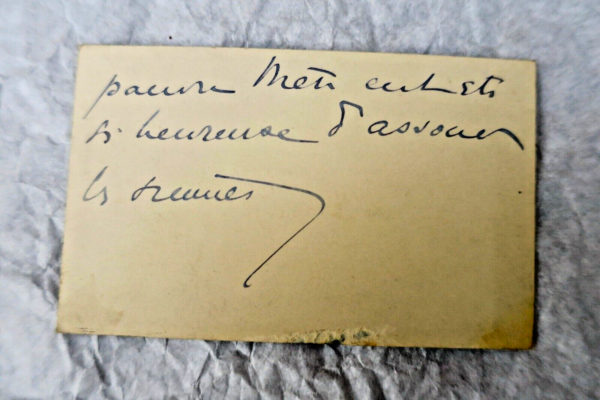 pauvre eut été
si heureuse d'associer
les siennes